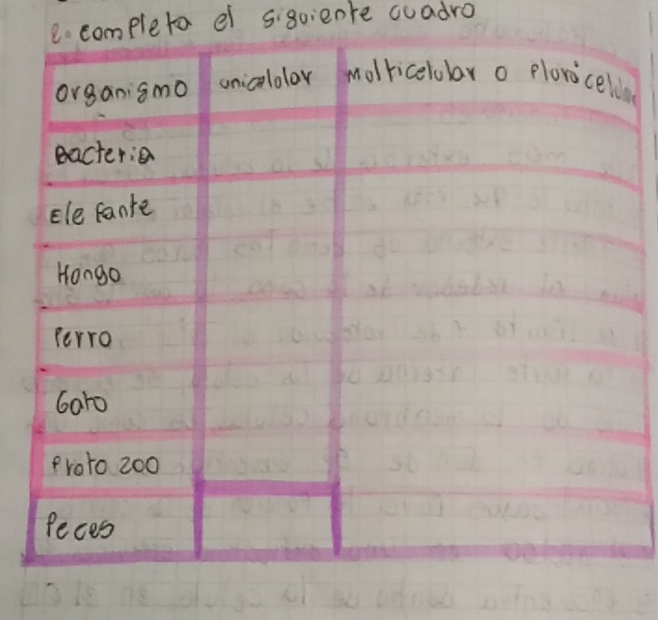 2. completa el siguiente cuadro
organismo unicelular multicelular o pluricelular
Bacteria
Elefante
Hongo
Perro
Gato
Protozoo
Peces